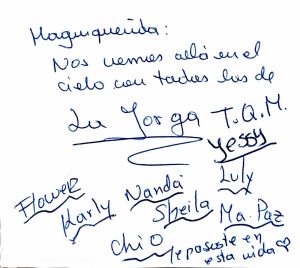 Magu querida:
Nos vemos allá en el
cielo con todas las de
La Jorga T.Q.M.
Yessy
Flower
Karly
Nanda
Sheila
Luly
Ma. Paz
Chio
en
esta vida